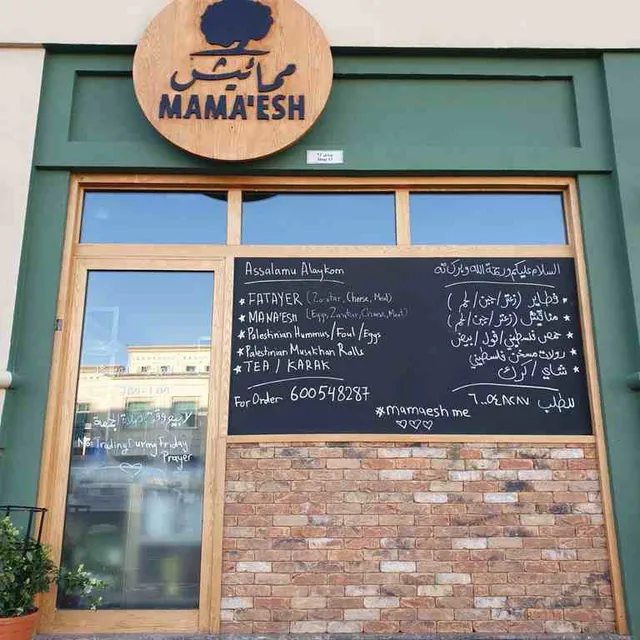 ممائيش
MAMA'ESH
Assalamu Alaykom
★ FATAYER (Zaatar, Cheese, Meat)
★ MANA'ESH (Eggs, Zaatar, Cheese, Meat)
★ Palestinian Hummus / Foul / Eggs
★ Palestinian Musakhan Rolls
★ TEA / KARAK
For Order 600548287
#mamaesh me
السلام عليكم ورحمة الله وبركاته
★ فطاير (زعتر / جبن / لحم)
★ مناقيش (زعتر / جبن / لحم)
★ حمص فلسطيني / فول / بيض
★ رولات مسخن فلسطيني
★ شاي / كرك
للطلب ٦٠٠٥٤٨٢٨٧
Not Trading During Friday
Prayer